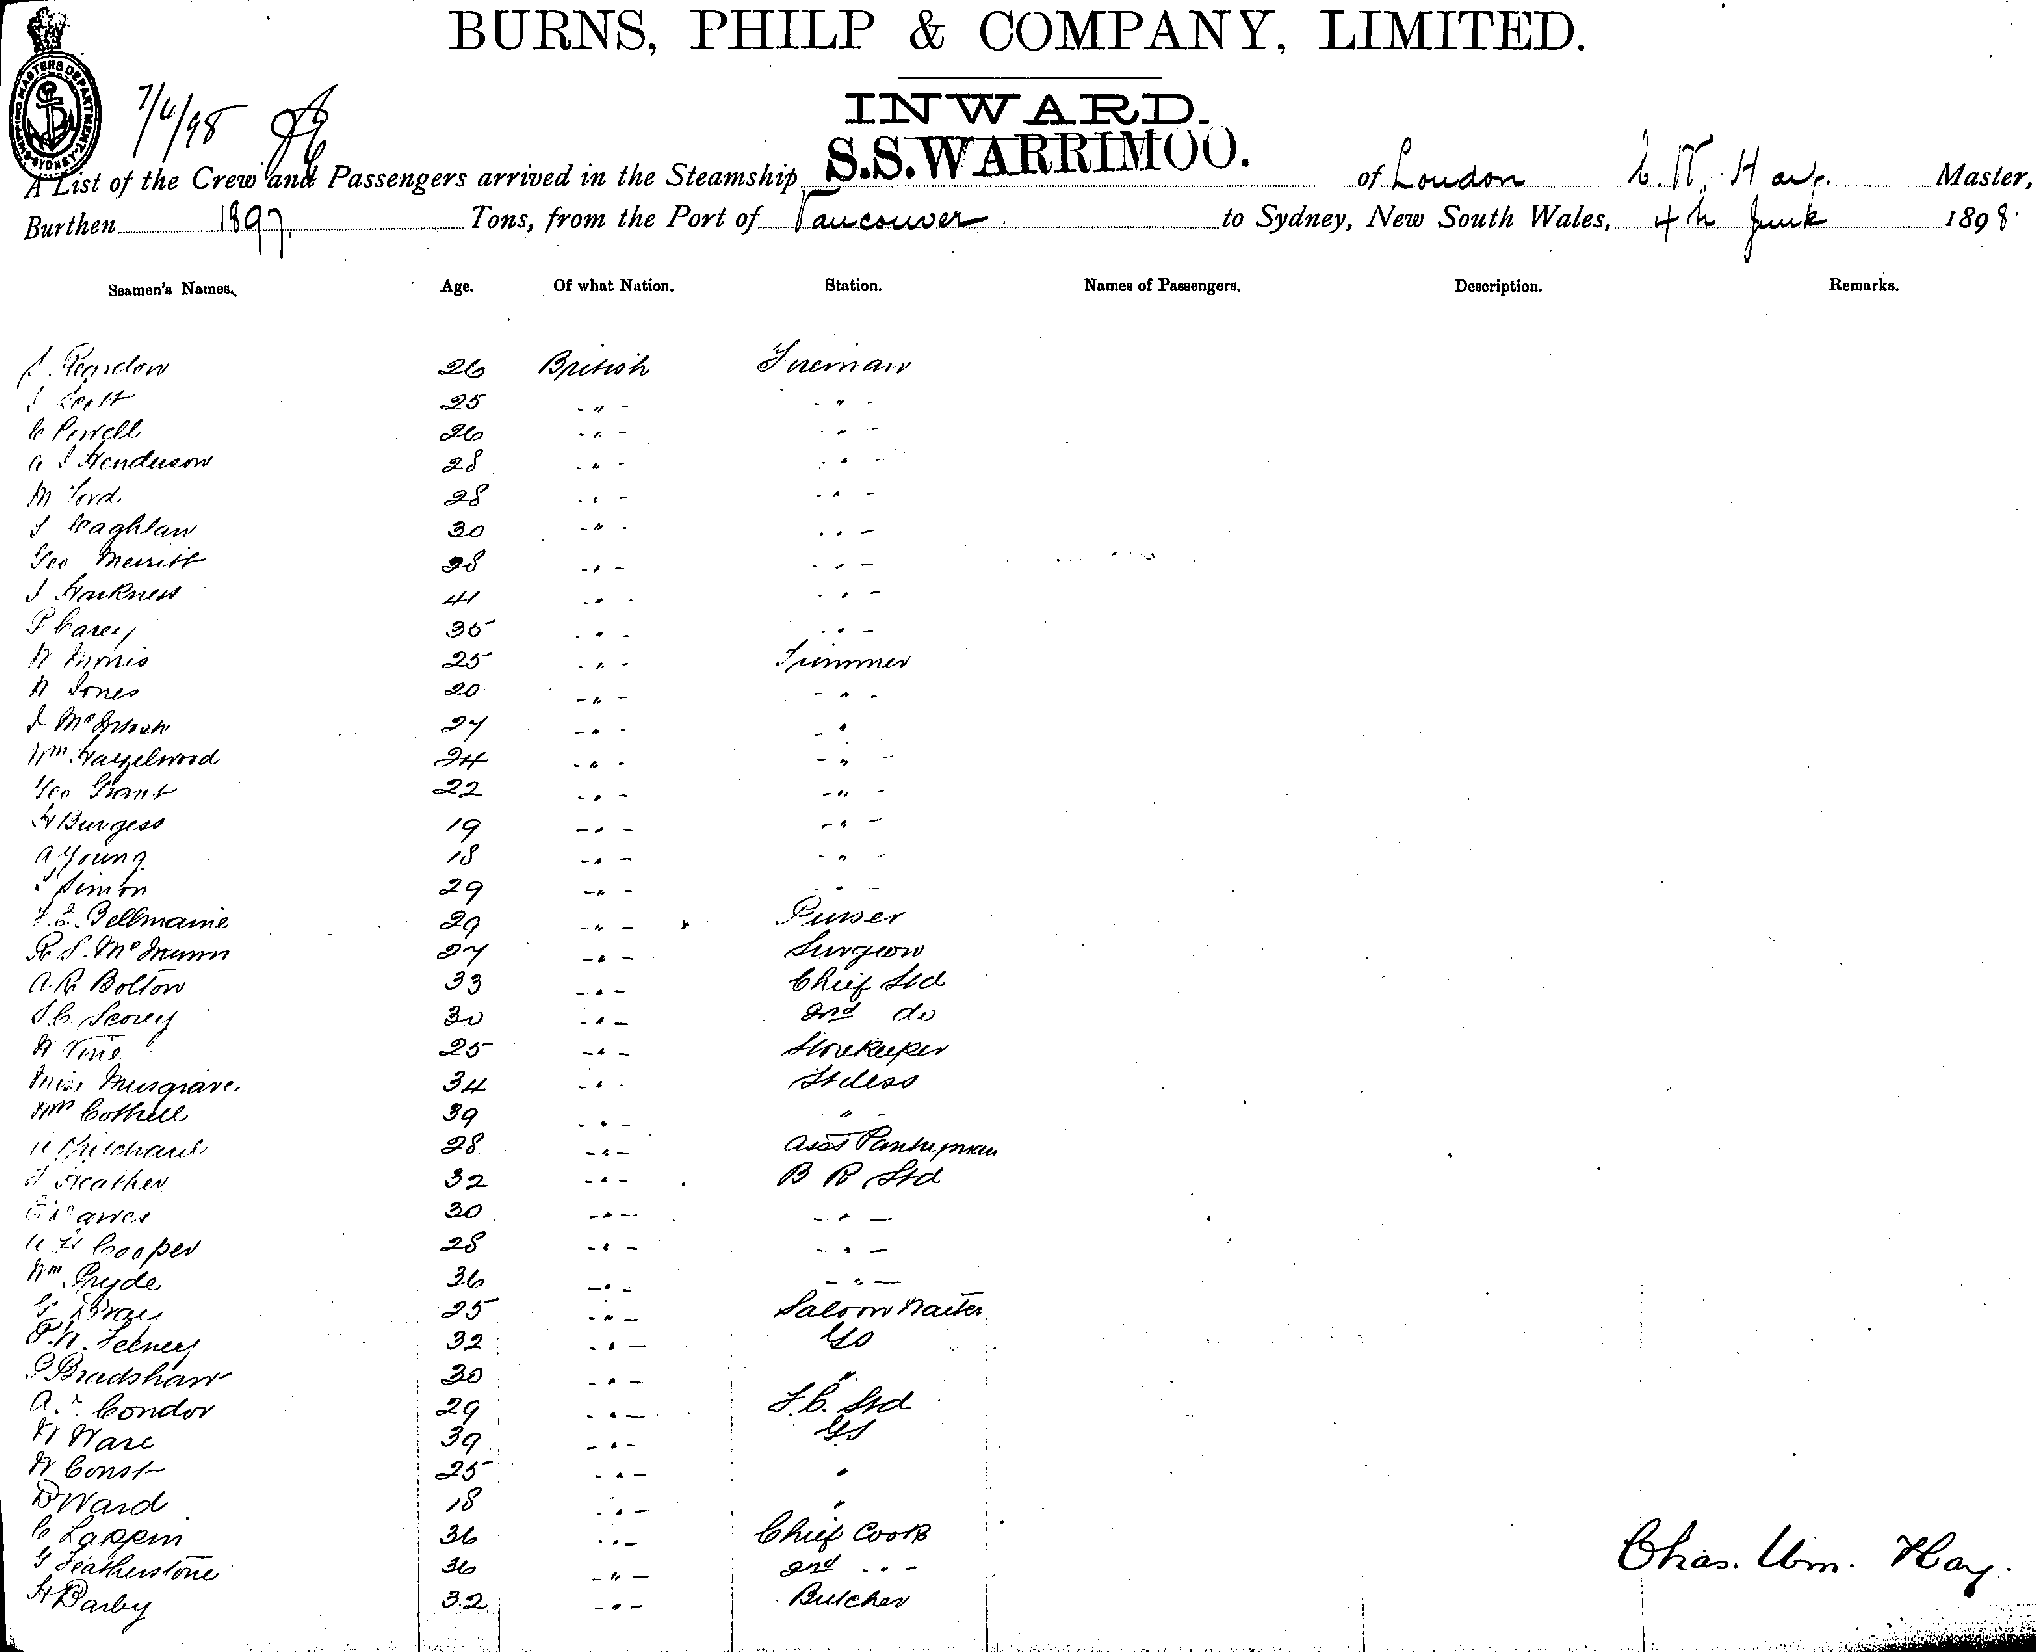 BURNS, PHILP & COMPANY, LIMITED.
INWARD.
7/6/98
A List of the Crew and Passengers arrived in the Steamship S.S. WARRIMOO. of London C. W. Hay. Master,
Burthen 1897. Tons, from the Port of Vancouver to Sydney, New South Wales, 4th June 1898.
Seamen's Names. Age. Of what Nation. Station. Names of Passengers. Description. Remarks.
Reardon 26 British Fireman
Scott 25 " "
C Powell 26 " "
A J Henderson 28 " "
M Ford. 28 " "
30 " "
Geo Merritt 28 " "
J Harkness 41 " "
P Carey 35 " "
W Morris 25 " Trimmer
W Jones 20 " "
27 " "
Wm. Hazelwood 24 " "
Geo Grant 22 " "
H Burgess 19 " "
A Young 18 " "
Simon 29 " "
Bellmaine 29 " Purser
27 " Surgeon
A. R. Bolton 33 " Chief Std
30 " 2nd do
W Vine 25 " Storekeeper
Miss Musgrave. 34 " Stdess
39 " "
Pritchard 28 " Asst Pantryman
Heather 32 " B R Std
30 " "
Cooper 28 " "
Wm. Pryde 36 " "
25 " Saloon Waiter
32 " Do
Bradshaw 30 " "
A. Condor 29 " F. C. Std
W Ware 39 " Do
W Const 25 " "
D Ward 18 " "
C Lappin 36 " Chief Cook
G Featherstone 36 " 2nd "
H Darby 32 " Butcher
Chas. Wm. Hay.